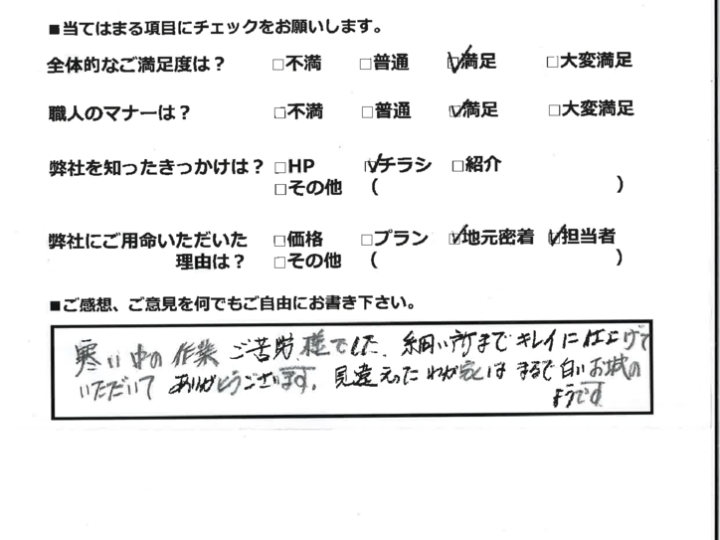 ■当てはまる項目にチェックをお願いします。
全体的なご満足度は？ □不満 □普通 ☑満足 □大変満足
職人のマナーは？ □不満 □普通 ☑満足 □大変満足
弊社を知ったきっかけは？ □HP ☑チラシ □紹介
□その他 （ ）
弊社にご用命いただいた □価格 □プラン ☑地元密着 ☑担当者
理由は？ □その他 （ ）
■ご感想、ご意見を何でもご自由にお書き下さい。
寒い中の作業 ご苦労様でした、細い所までキレイに仕上げて
いただいて ありがとうございます。見違えった わが家は まるで白いお城の
ようです